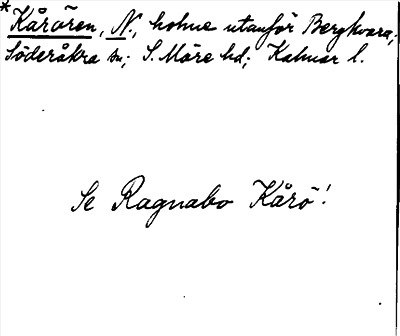 *Kårören, N., holme utanför Bergkvara;
Söderåkra sn; S. Möre hd; Kalmar l.
Se Ragnabo Kårö!